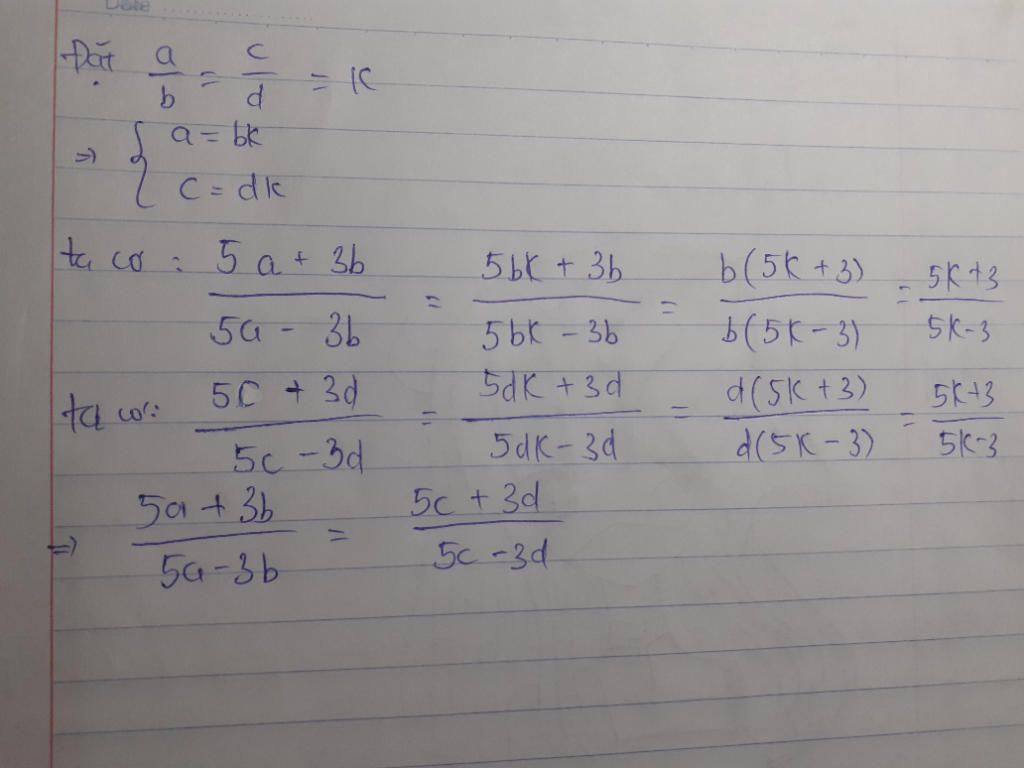 Date
Đặt a/b = c/d = K
⇒ { a = bk
c = dk
ta có : 5a + 3b / 5a - 3b = 5bK + 3b / 5bk - 3b = b(5K + 3) / b(5K - 3) = 5K+3 / 5K-3
ta có: 5C + 3d / 5c - 3d = 5dK + 3d / 5dK - 3d = d(5K + 3) / d(5K - 3) = 5K+3 / 5K-3
⇒ 5a + 3b / 5a - 3b = 5c + 3d / 5c - 3d